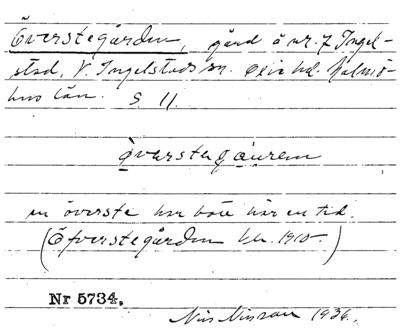 Överstegården, gård å nr. 7 Ingel-
stad, V. Ingelstads sn. Oxie hd. Malmö-
hus län. S 11
överstegåuren
en överste har bott här en tid.
(Öfverstegården bl. 1910.)
Nr 5734.
Nils Nilsson 1936.